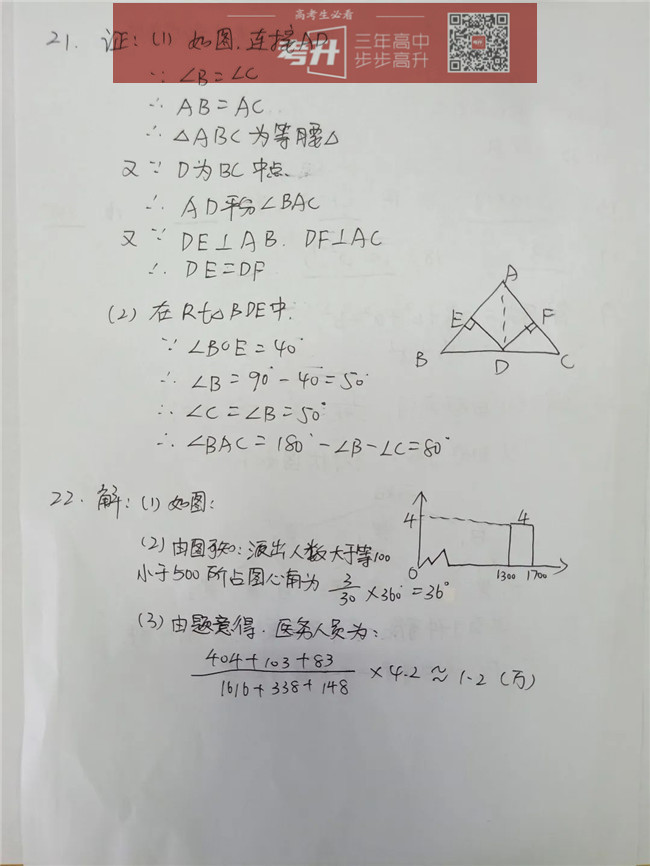 高考生必看
考升 三年高中
步步高升
21. 证: (1) 如图, 连接AD
∵ ∠B=∠C
∴ AB=AC
∴ △ABC为等腰△
又∵ D为BC中点.
∴ AD平分∠BAC
又∵ DE⊥AB. DF⊥AC
∴ DE=DF
(2) 在Rt△BDE中.
∵ ∠BOE=40°
∴ ∠B=90°-40°=50°
∴ ∠C=∠B=50°
∴ ∠BAC=180°-∠B-∠C=80°
A
E F
B D C
22. 解: (1) 如图:
4 4
0 1300 1700
(2) 由图可知: 派出人数大于等100
小于500所占圆心角为 3/30 ×360°=36°
(3) 由题意得. 医务人员为:
404+103+83
1616+338+148 ×4.2≈1.2 (万)